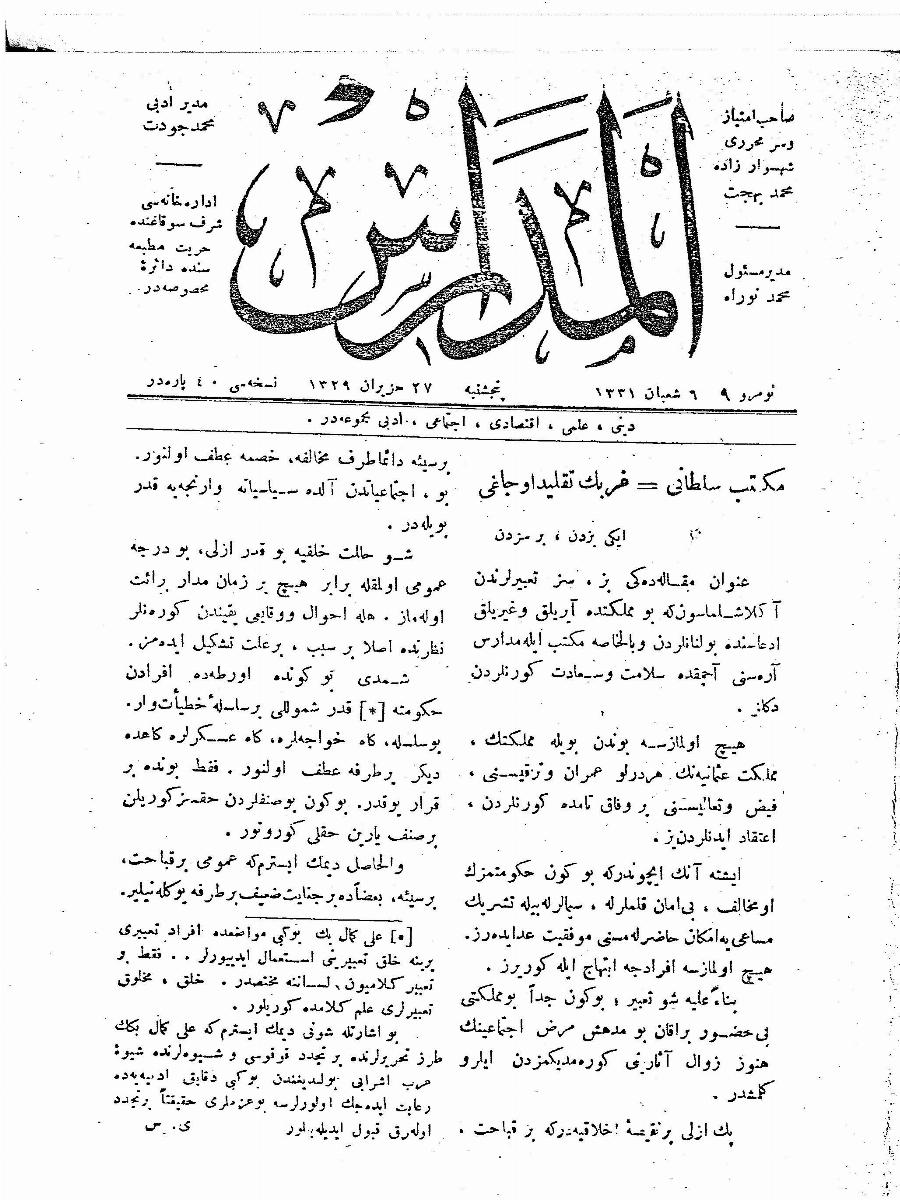 صاحب امتیاز
وسر محرری
شهسوار زاده
محمد بهجت
مدیر مسئول
محمد نوراه
المدارس
مدیر ادبی
محمد جودت
اداره‌خانه‌سی
شرف سوقاغنده
حریت مطبعه
سنده دائرهٔ
مخصوصه‌در.
نومرو ٩ ٦ شعبان ١٣٣١ پنجشنبه ٢٧ حزیران ١٣٢٩ نسخه‌سی ٤٠ پاره‌در
دینی ، علمی ، اقتصادی ، اجتماعی ، ادبی مجموعه‌در .
مکتب سلطانی = غربك تقلید اوجاغی
ایکی بزدن ، بر سزدن
عنوان مقاله‌ده‌کی بز ، سز تعبیرلرندن
آ کلاشلماسون‌که بو مملکتده آریلق وغیریلق
ادعاسنده بولنانلردن وبالخاصه مکتب ایله مدارس
آره‌سنی آچمقده سلامت وسعادت کورنلردن
دکلز .
هیچ اولمازسه بوندن بویله مملکتك ،
مملکت عثمانیه‌نك هردرلو عمران وترقیسنی ،
فیض وتعالیسنی بر وفاق تامده کورنلردن ،
اعتقاد ایدنلردن‌ز .
ایشته آنك ایچوندرکه بو کون حکومتمزك
اومخالف ، بی‌امان قلملرله ، سیمالرله بیله تشریك
مساعی یه امکان حاضرله‌مسنی موفقیت عدایده‌رز.
هیچ اولمازسه افرادجه ابتهاج ایله کوریرز .
بناءً علیه شو تعبیر ؛ بوکون جداً بومملکتی
بی حضور براقان بو مدهش مرض اجتماعینك
هنوز زوال آثارینی کوره‌مدیکمزدن ایلرو
کلمشدر .
پك ازلی برنقیصهٔ اخلاقیه‌درکه بر قباحت .
برسیئه دائما طرف مخالفه، خصمه عطف اولنور.
بو ، اجتماعیاتدن آلده سیاسیاته وارنجه‌یه قدر
بویله‌در .
شو حالت خلقیه بو قدر ازلی، بو درجه
عمومی اولمقله برابر هیچ بر زمان مدار برائت
اوله‌ماز . هله احوال ووقایعی یقیندن کوره‌نلر
نظرنده اصلا بر سبب ، بر علت تشکیل ایده‌مز.
شمدی بو کونده اورطه‌ده افرادن
حکومته [*] قدر شموللی برسلسلهٔ خطیأت وار.
بوسلسله، کاه خواجه‌لره، کاه عسکرلره کاهده
دیکر برطرفه عطف اولنور . فقط بونده بر
قرار یوقدر. بوکون بوصنفلردن حقسز کوریلن
برصنف یارین حقلی کورونور .
والحاصل دیمك ایسترم‌که عمومی برقباحت،
برسیئه، بعضاًده برجنایت ضعیف برطرفه یوکله‌نیلیر.
[*] علی کمال بك بوکبی مواضعده افراد تعبیری
یرینه خلق تعبیرینی استعمال ایدییورلر .. فقط بو
تعبیر کلامیون لسانه مختصدر . خلق ، مخلوق
تعبیرلری علم کلامده کوریلور .
بو اشارتله شونی دیمك ایسترم که علی کمال بکك
طرز تحریرلرنده بر تجدد قوقوسی و شیوه‌لرنده شیوهٔ
عرب اشرابی بولندیغندن بوکبی دقایق ادبیه‌یه‌ده
رعایت ایده‌جك اولورلرسه بوعزملری حقیقتاً برتجدد
اوله‌رق قبول ایدیله‌بیلور ی. س